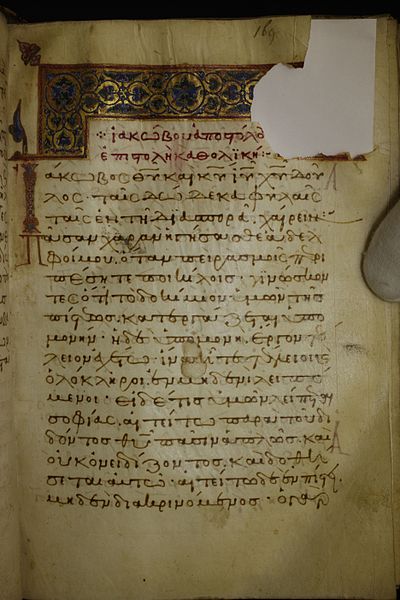 169
ἰακώβου ἀποστόλο
ἐπιστολὴ καθολικὴ
Ἰάκωβος θυ καὶ κυ ιυ χυ δου
λος· ταῖς δώδεκα φυλαῖς
ταῖς ἐν τῆ διασπορᾶ. χαίρειν
Πᾶσαν χαρὰν ἡγήσασθε ἀδελ
φοί μου, ὅταν πειρασμοῖς περι
πέσητε ποικίλοις. γινώσκον
τες ὅτι τὸ δοκίμιον ὑμῶν τῆς
πίστεως. κατεργάζεται ὑπο
μονήν· ἡ δὲ ὑπομονὴ. ἔργον τέ
λειον ἐχέτω· ἵνα ἦτε τέλειοι κ
ὁλόκληροι. ἐν μηδενὶ λειπό
μενοι· εἰ δέ τις ὑμῶν λείπεται
σοφίας. αἰτείτω παρὰ τοῦ δι
δόντος θυ πᾶσιν ἁπλῶς. καὶ
οὐκ ὀνειδίζοντος. καὶ δοθή
σεται αὐτῶ· αἰτείτω δὲ ἐν πίστει.
μηδὲν διακρινόμενος· ὁ γὰρ